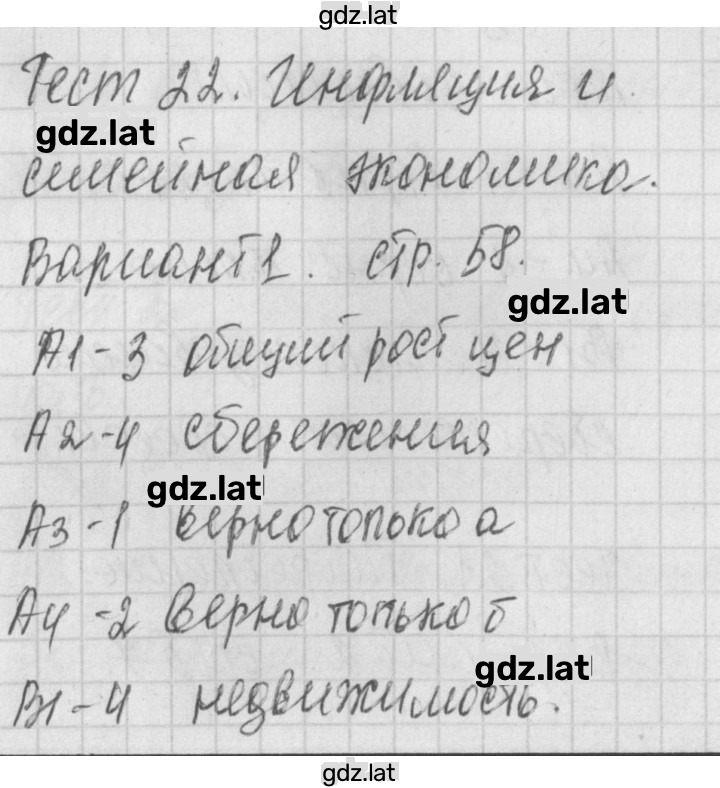 gdz.lat
Тест 22. Инфляция и
gdz.lat
семейная экономика.
Вариант 1. стр. 58.
gdz.lat
А1-3 общий рост цен
А2-4 сбережения
gdz.lat
А3-1 верно только а
А4-2 Верно только б
gdz.lat
В1-4 недвижимость.
gdz.lat